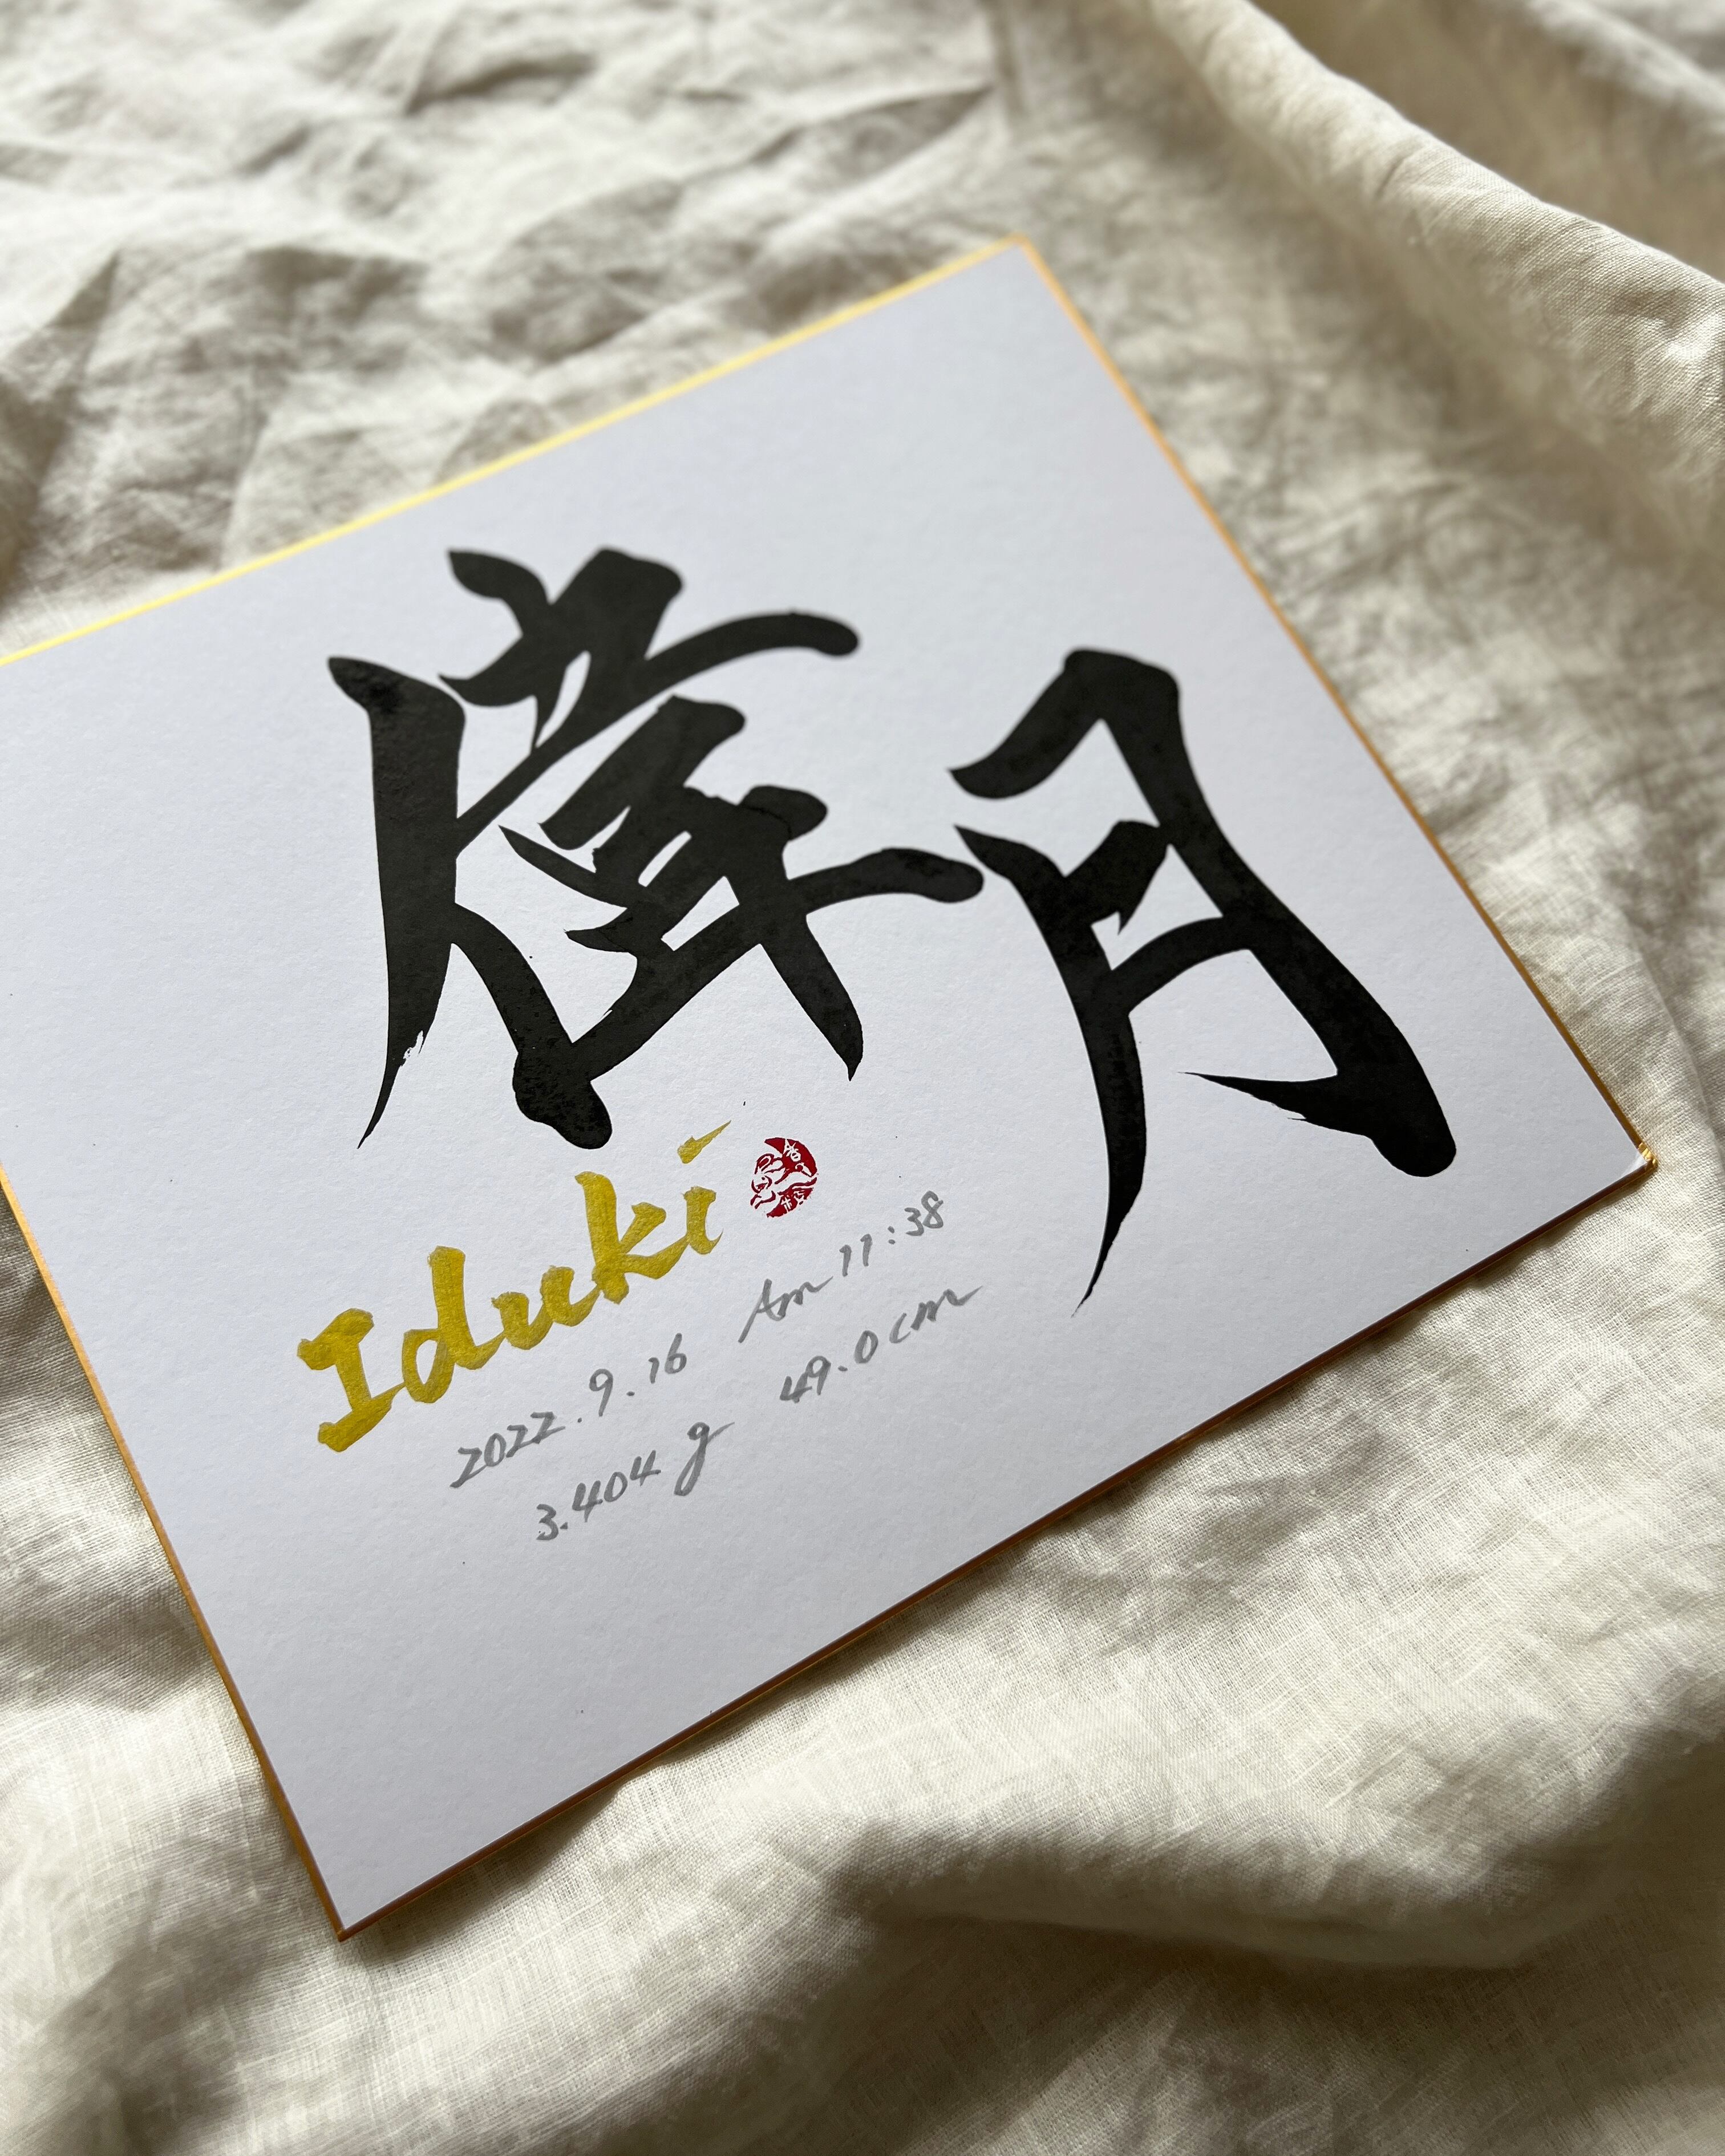 偉月
Iduki
2022.9.16 Am 11:38
3.404 g 49.0cm